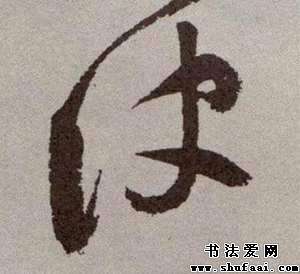 使
书法爱网
www.shufaai.com